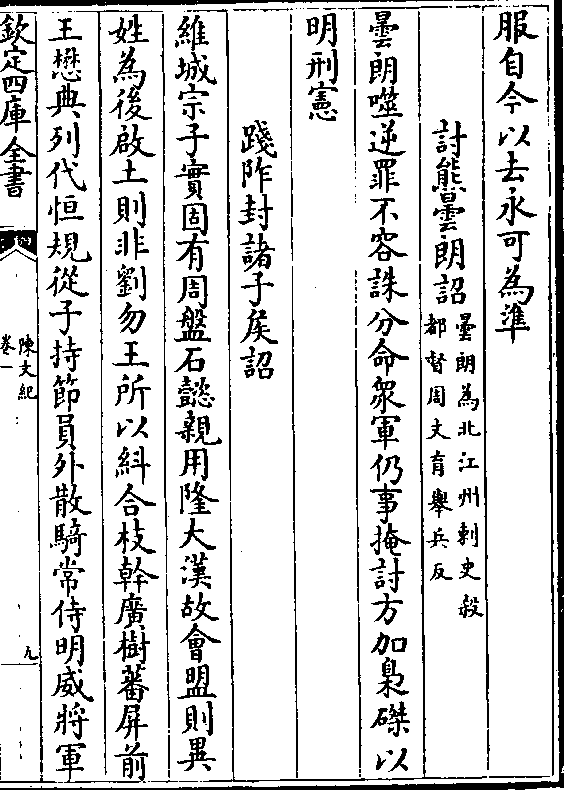 服自今以去永可為準
討熊曇朗詔曇朗為北江州刺史殺
都督周文育舉兵反
曇朗噬逆罪不容誅分命衆軍仍事掩討方加梟磔以
明刑憲
踐阼封諸子矦詔
維城宗子實固有周盤石懿親用隆大漢故會盟則異
姓為後啟土則非劉勿王所以糾合枝幹廣樹蕃屏前
王懋典列代恒規從子持節員外散騎常侍明威將軍
欽定四庫全書
陳文紀
卷一
九